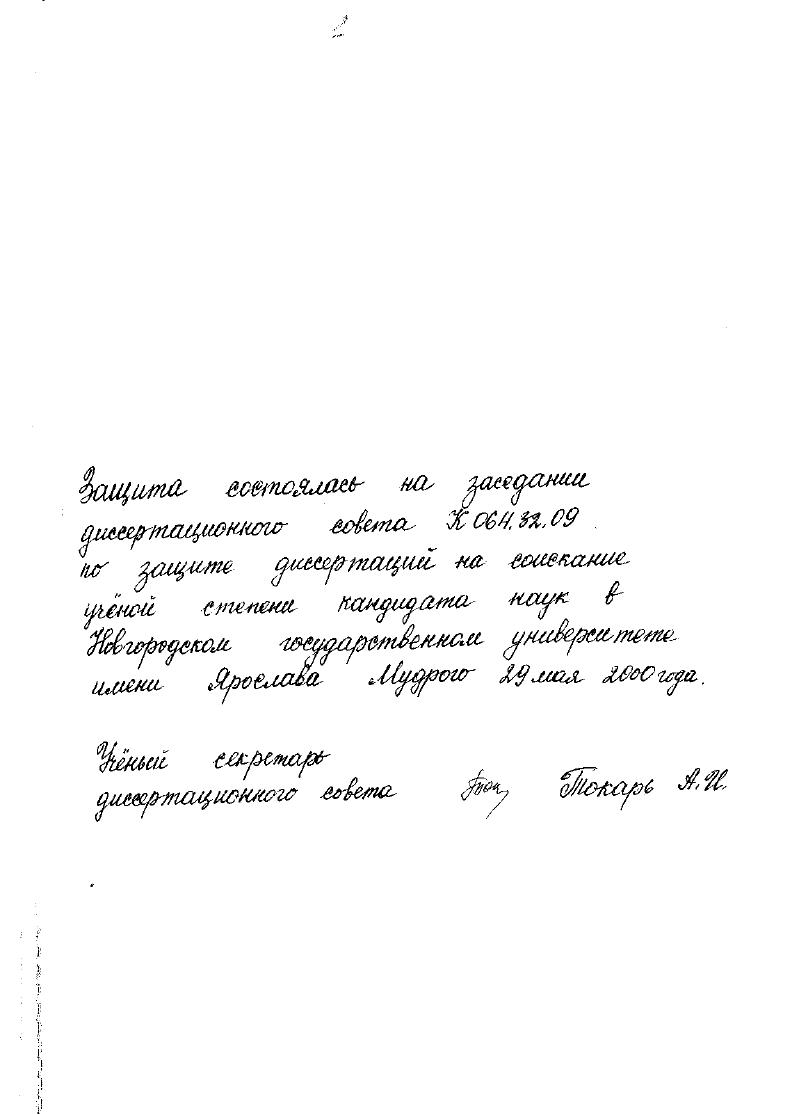 2
Защита состоялась на заседании
диссертационного совета К 064.32.09
по защите диссертаций на соискание
учёной степени кандидата наук в
Новгородском государственном университете
имени Ярослава Мудрого 29 мая 2000 года.
Учёный секретарь
диссертационного совета Токарь А.И.